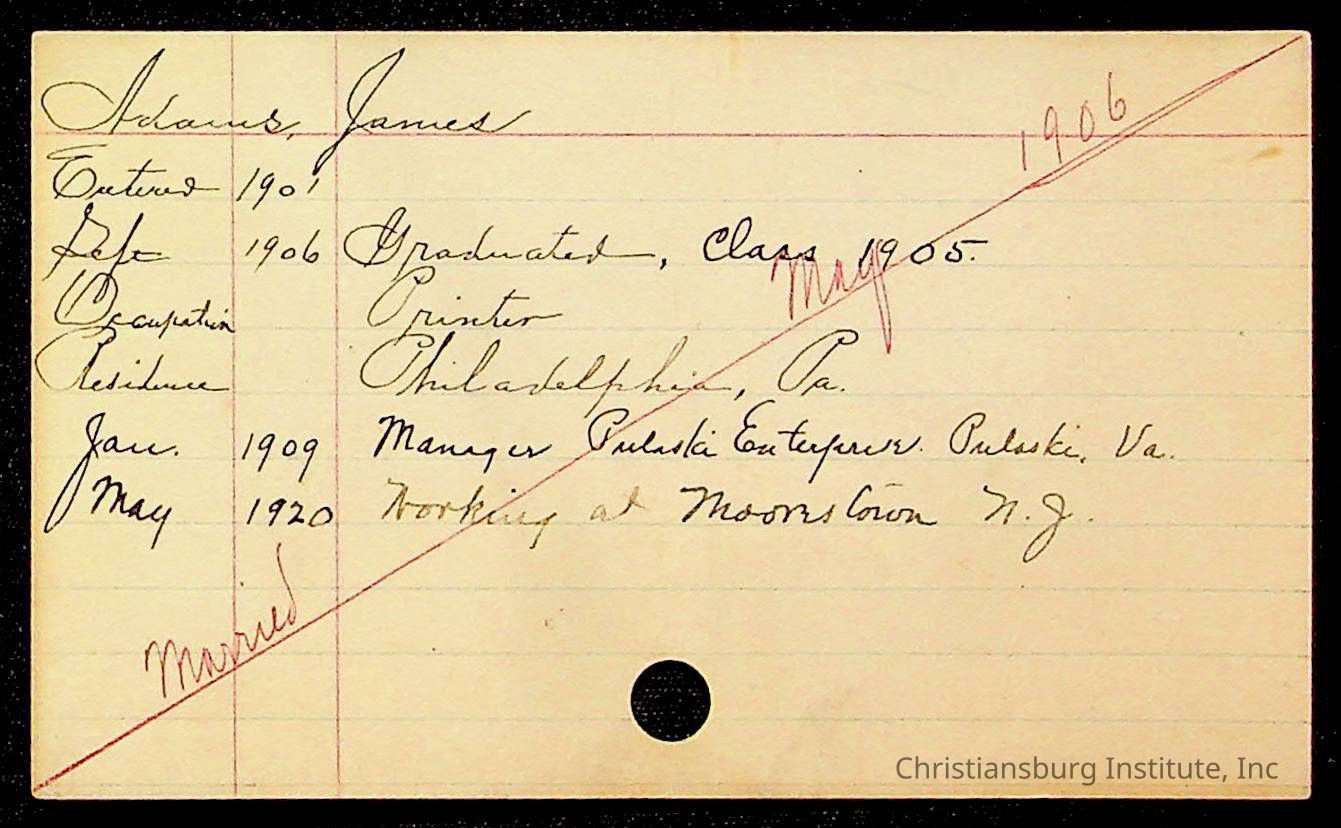 Adams, James
1906
Entered 1901
Left 1906 Graduated, Class 1905.
May
Occupation Printer
Residence Philadelphia, Pa.
Jan. 1909 Manager Pulaski Enterprise. Pulaski, Va.
May 1920 Working at Moorestown N.J.
Married
Christiansburg Institute, Inc